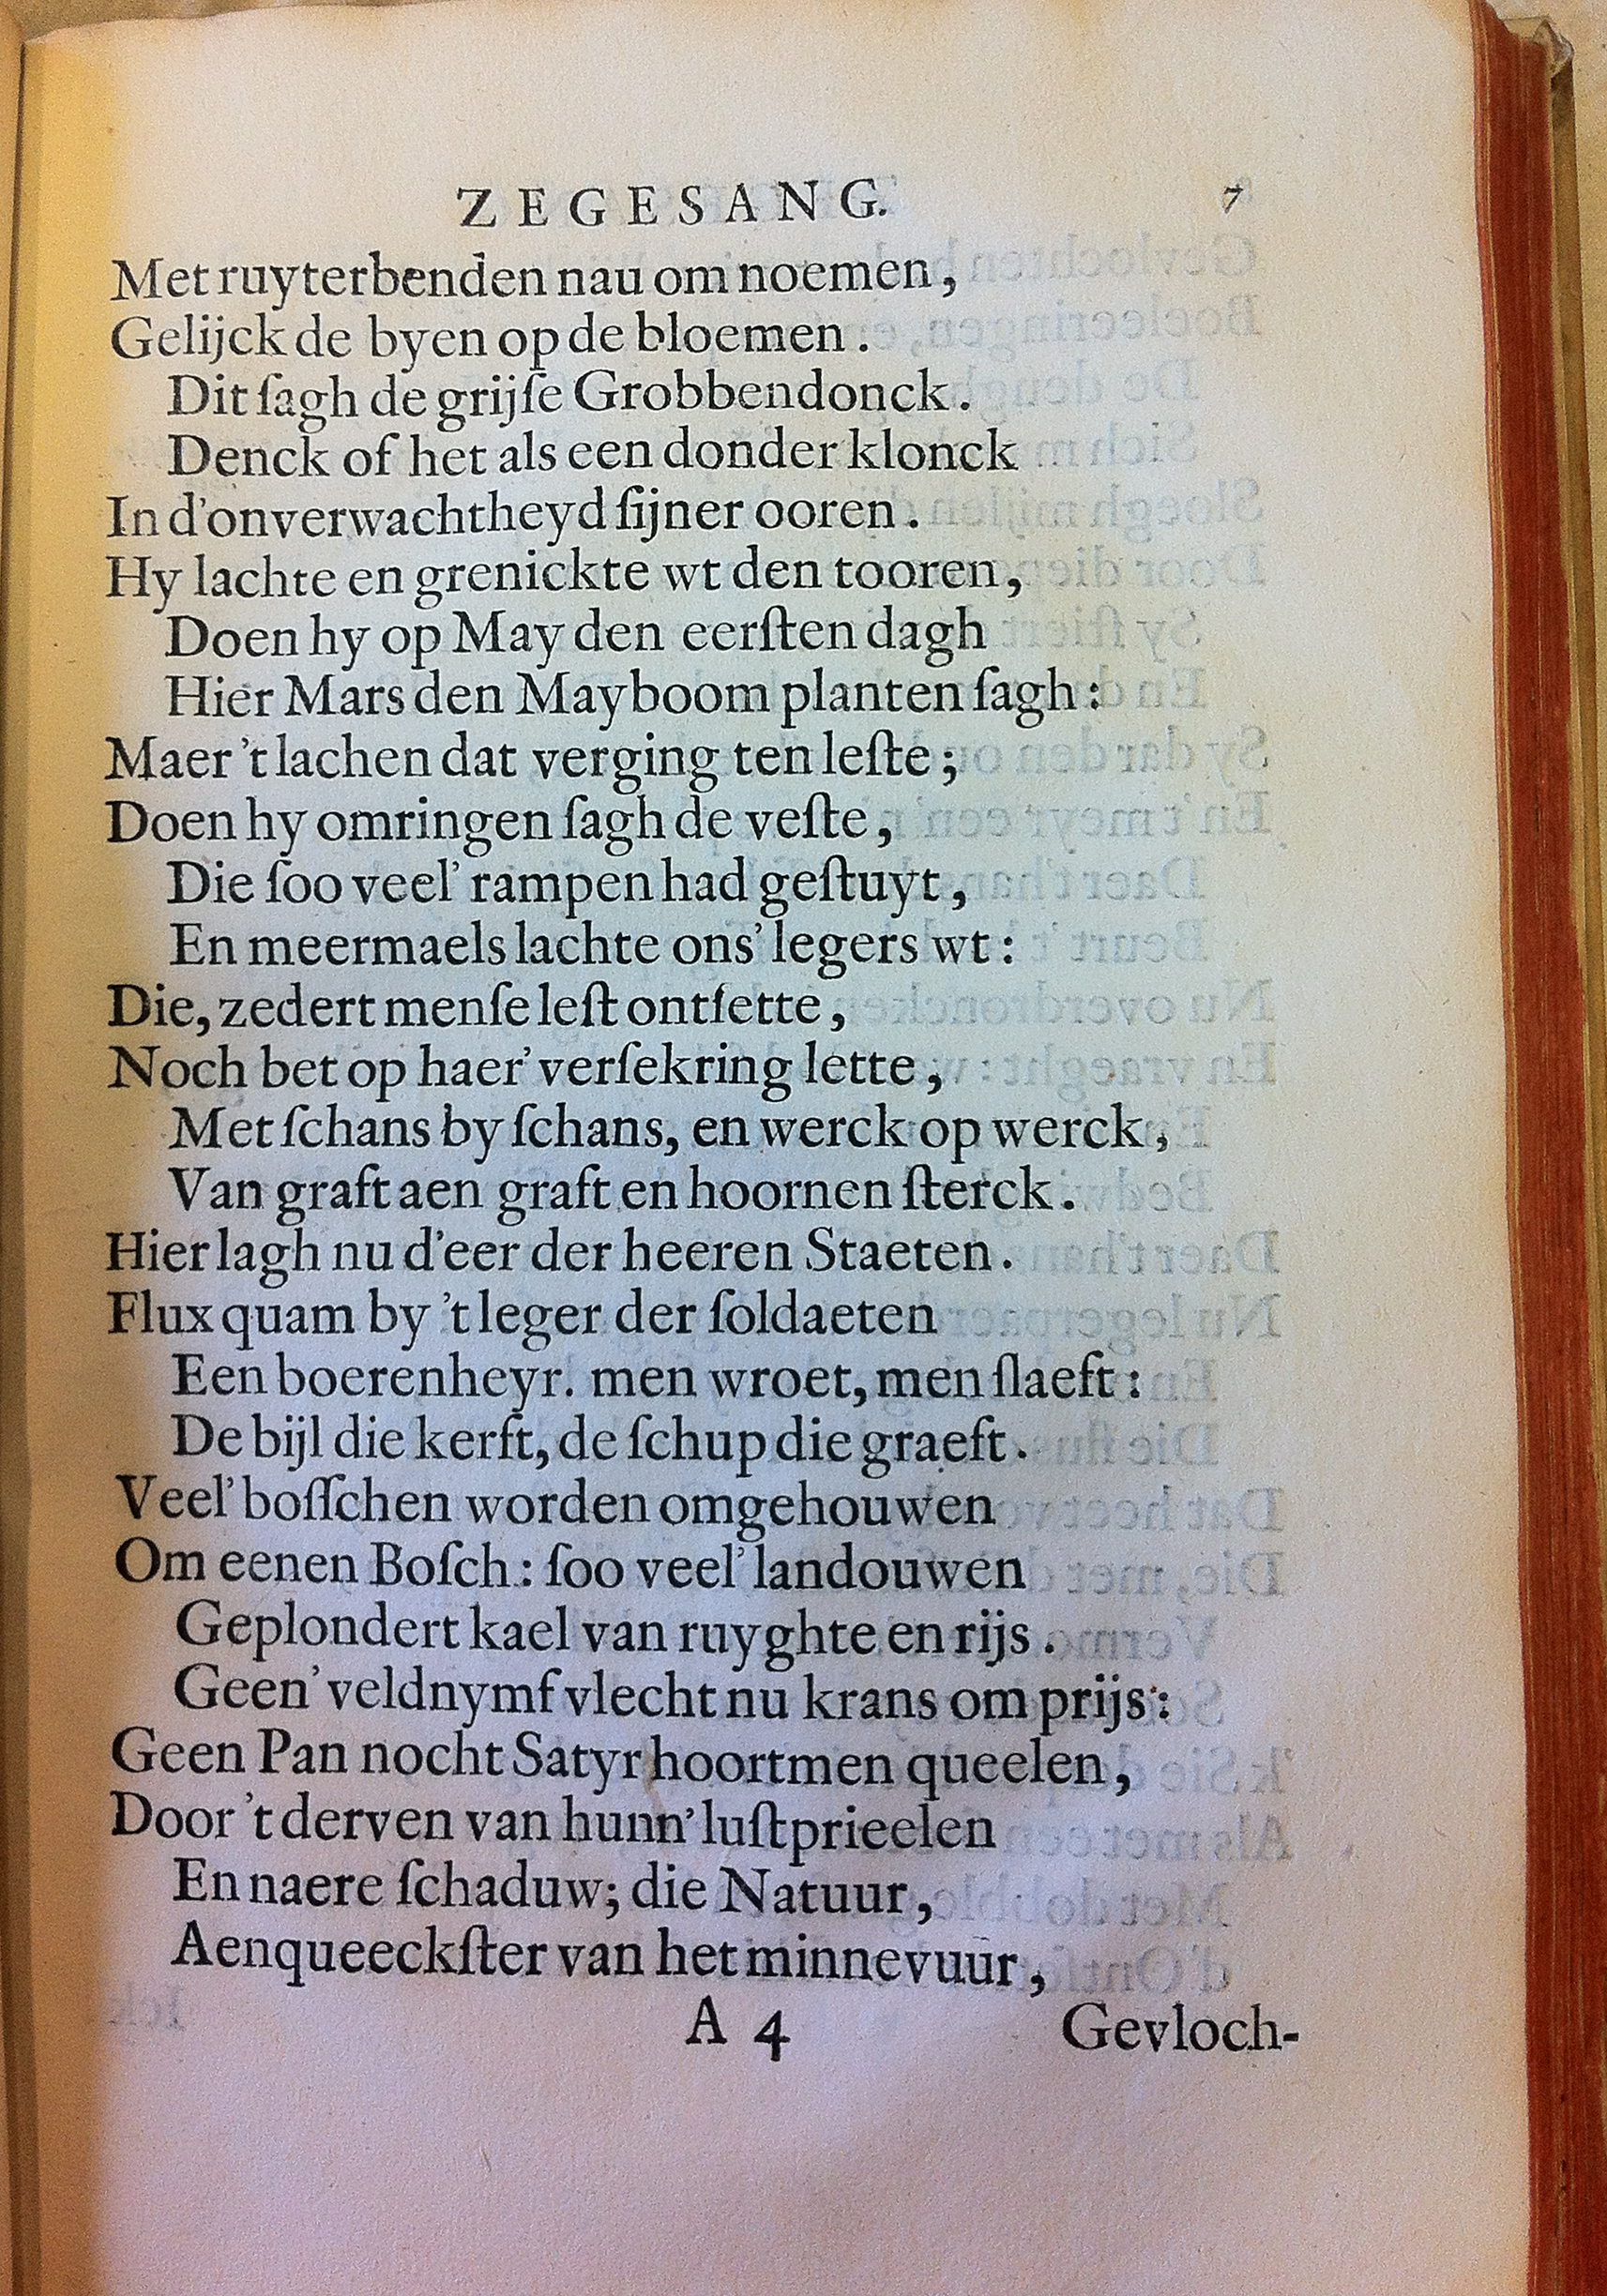 ZEGESANG. 7
Met ruyterbenden nau om noemen,
Gelijck de byen op de bloemen.
Dit ſagh de grijſe Grobbendonck.
Denck of het als een donder klonck
In d'onverwachtheyd ſijner ooren.
Hy lachte en grenickte wt den tooren,
Doen hy op May den eerſten dagh
Hier Mars den Mayboom planten ſagh:
Maer 't lachen dat verging ten leſte;
Doen hy omringen ſagh de veſte,
Die ſoo veel' rampen had geſtuyt,
En meermaels lachte ons' legers wt:
Die, zedert menſe leſt ontſette,
Noch bet op haer' verſekring lette,
Met ſchans by ſchans, en werck op werck,
Van graft aen graft en hoornen ſterck.
Hier lagh nu d'eer der heeren Staeten.
Flux quam by 't leger der ſoldaeten
Een boerenheyr. men wroet, men ſlaeft:
De bijl die kerft, de ſchup die graeft.
Veel' boſſchen worden omgehouwen
Om eenen Boſch: ſoo veel' landouwen
Geplondert kael van ruyghte en rijs.
Geen' veldnymf vlecht nu krans om prijs:
Geen Pan nocht Satyr hoortmen queelen,
Door 't derven van hunn' luſtprieelen
En naere ſchaduw; die Natuur,
Aenqueeckſter van het minnevuur,
A 4 Gevloch-